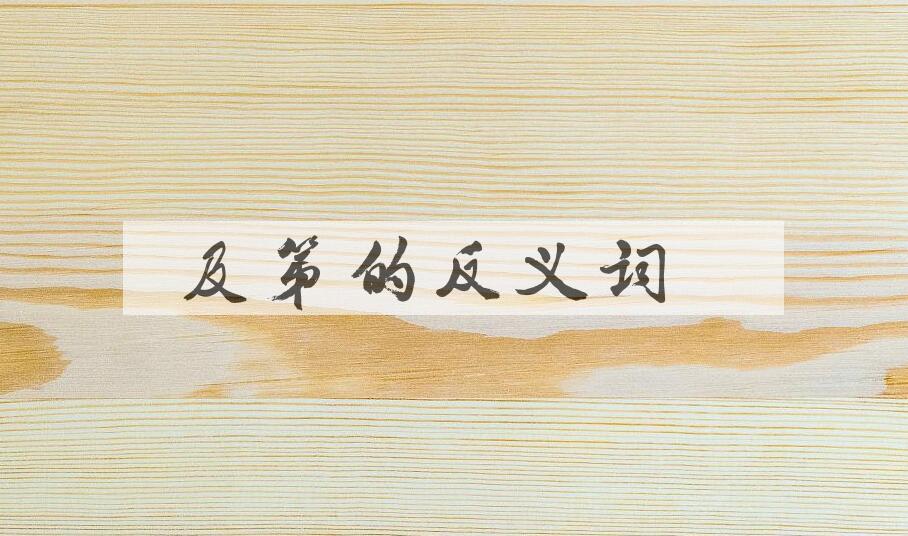 及第的反义词